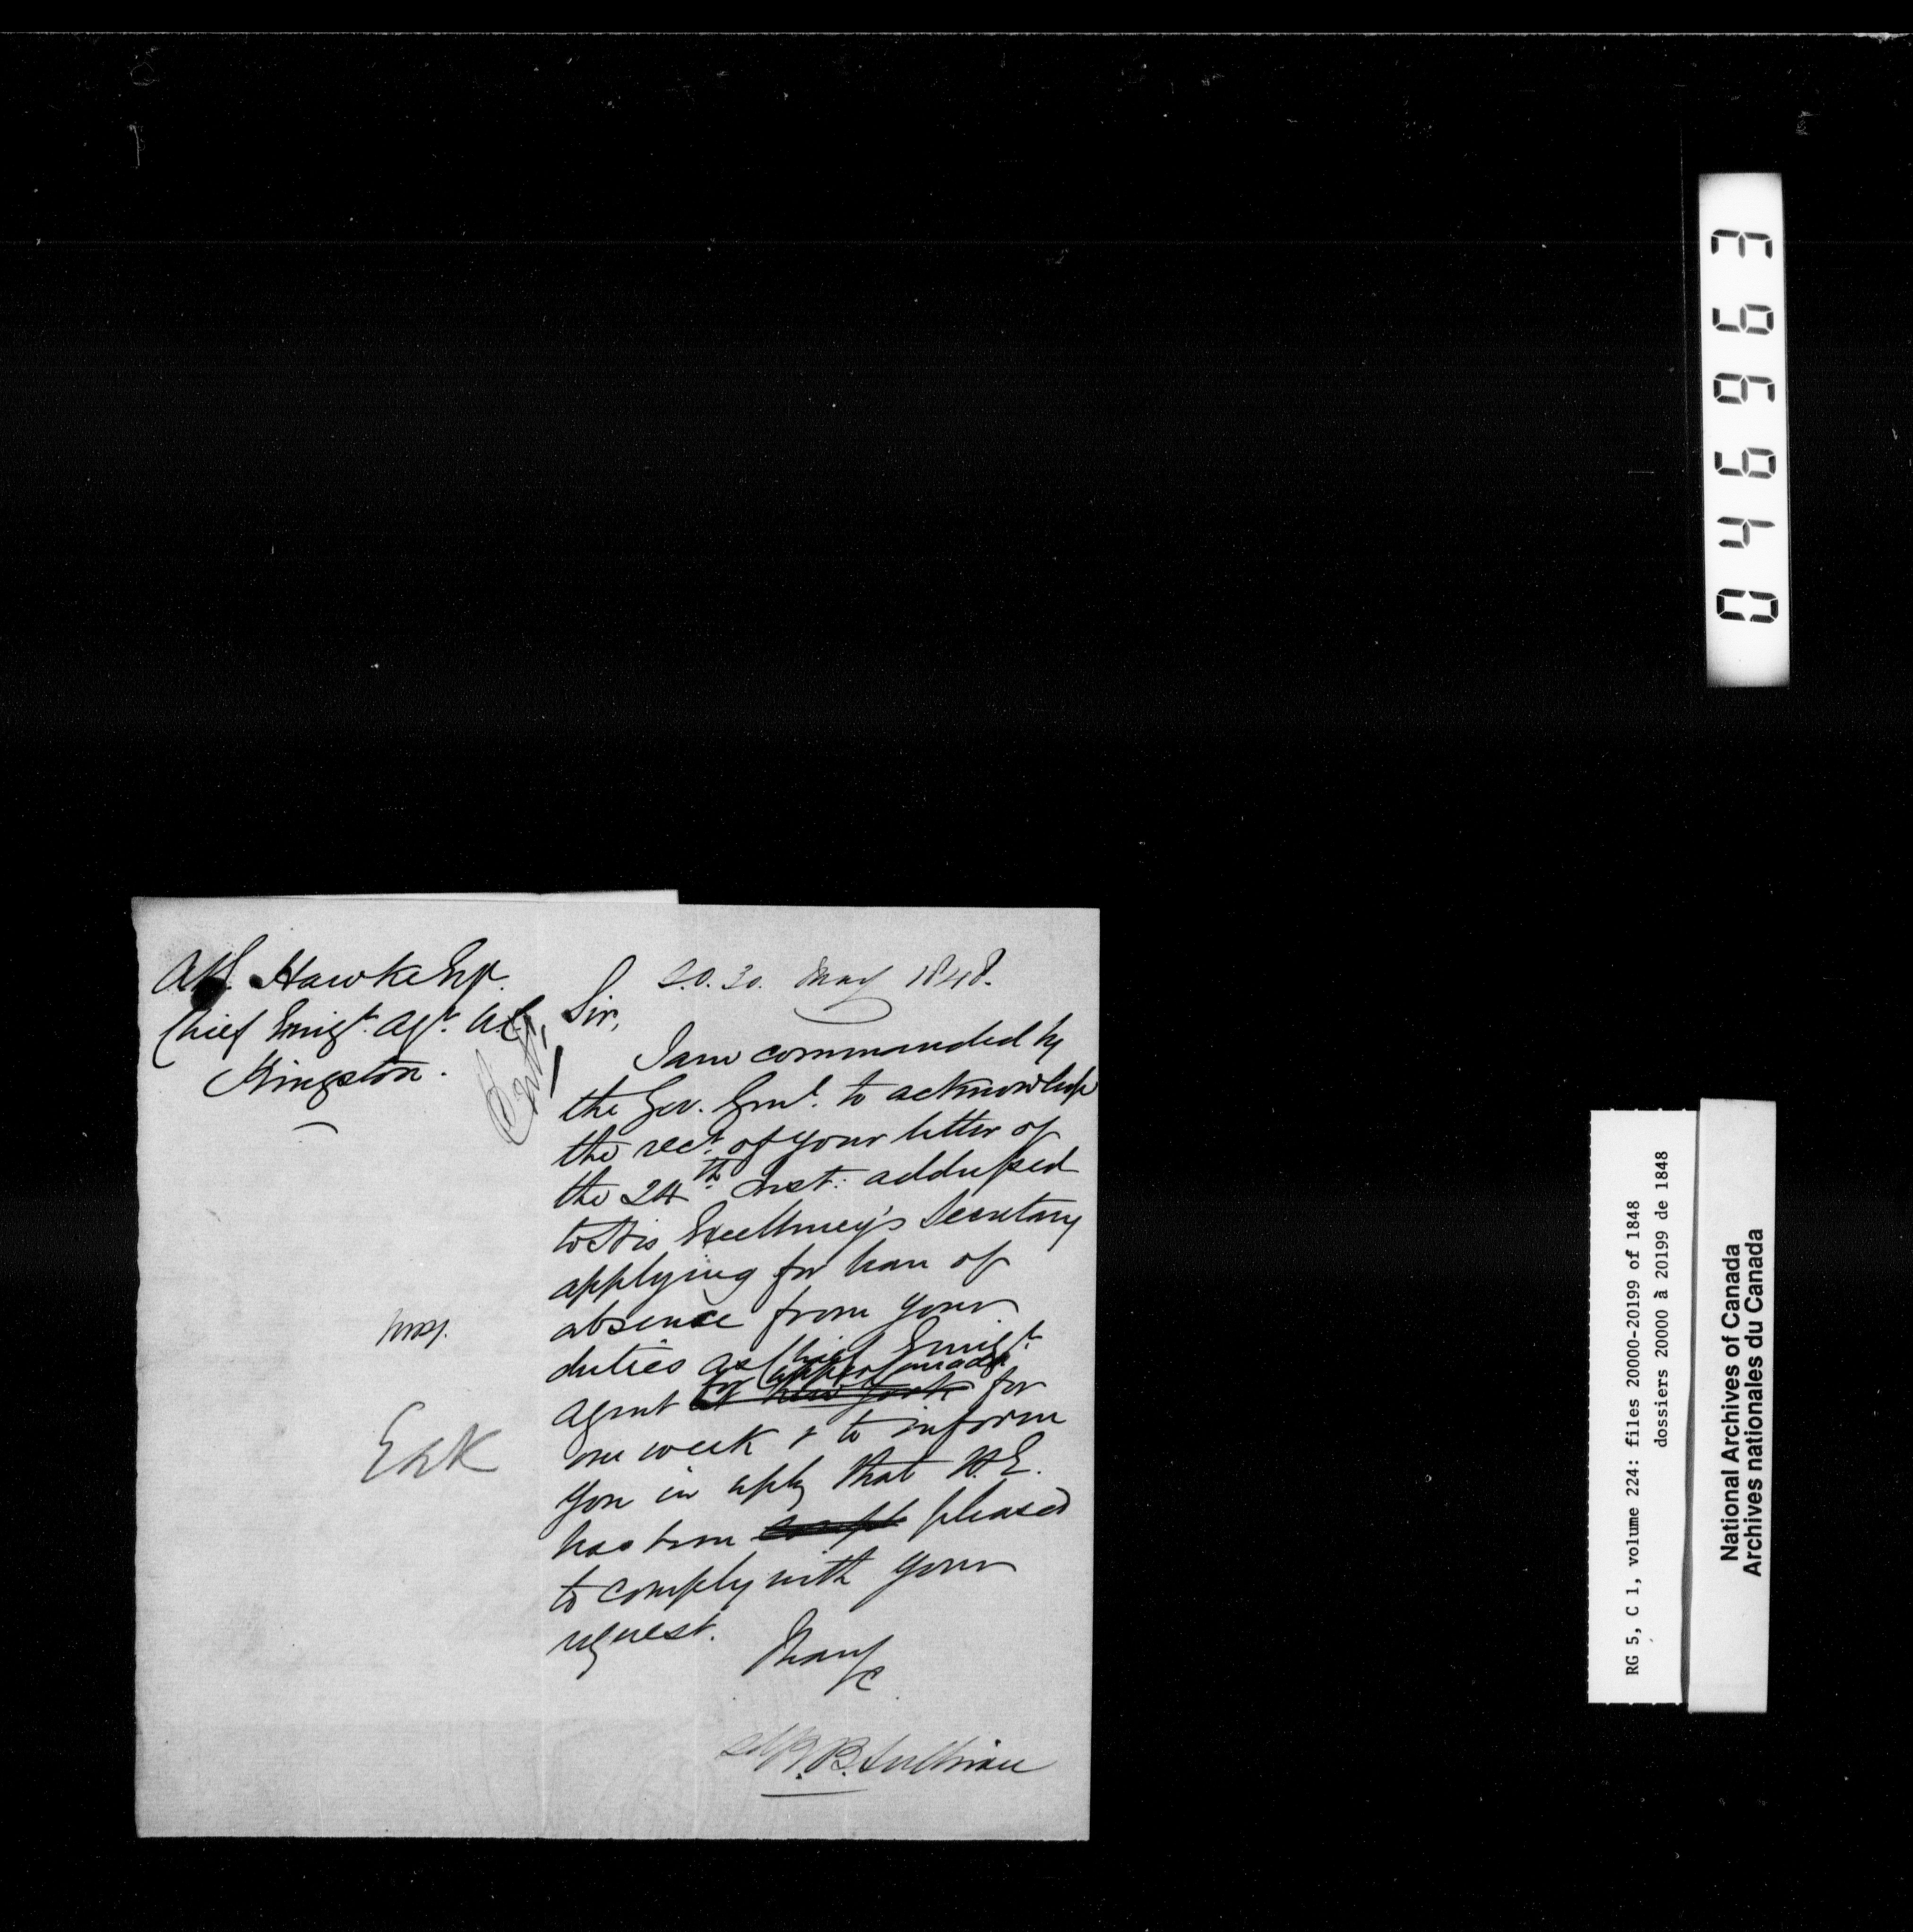 A.B. Hawke Esqr.
Chief Emigt. Agt. U.C.
Kingston.
S.O. 30. May 1848.
Sir,
I am commanded by
the Gov. Genl. to acknowledge
the rect. of your letter of
the 24th Inst: addressed
to His Excellency's Secretary
applying for leave of
absence from your
duties as Chief Emigt.
for Upper Canada
agent at New York for
one week & to inform
you in reply that H.E.
has been pleased
to comply with your
request.
I have &c
Sd R.B. Sullivan
046963
RG 5, C 1, volume 224: files 20000-20199 of 1848
dossiers 20000 à 20199 de 1848
National Archives of Canada
Archives nationales du Canada